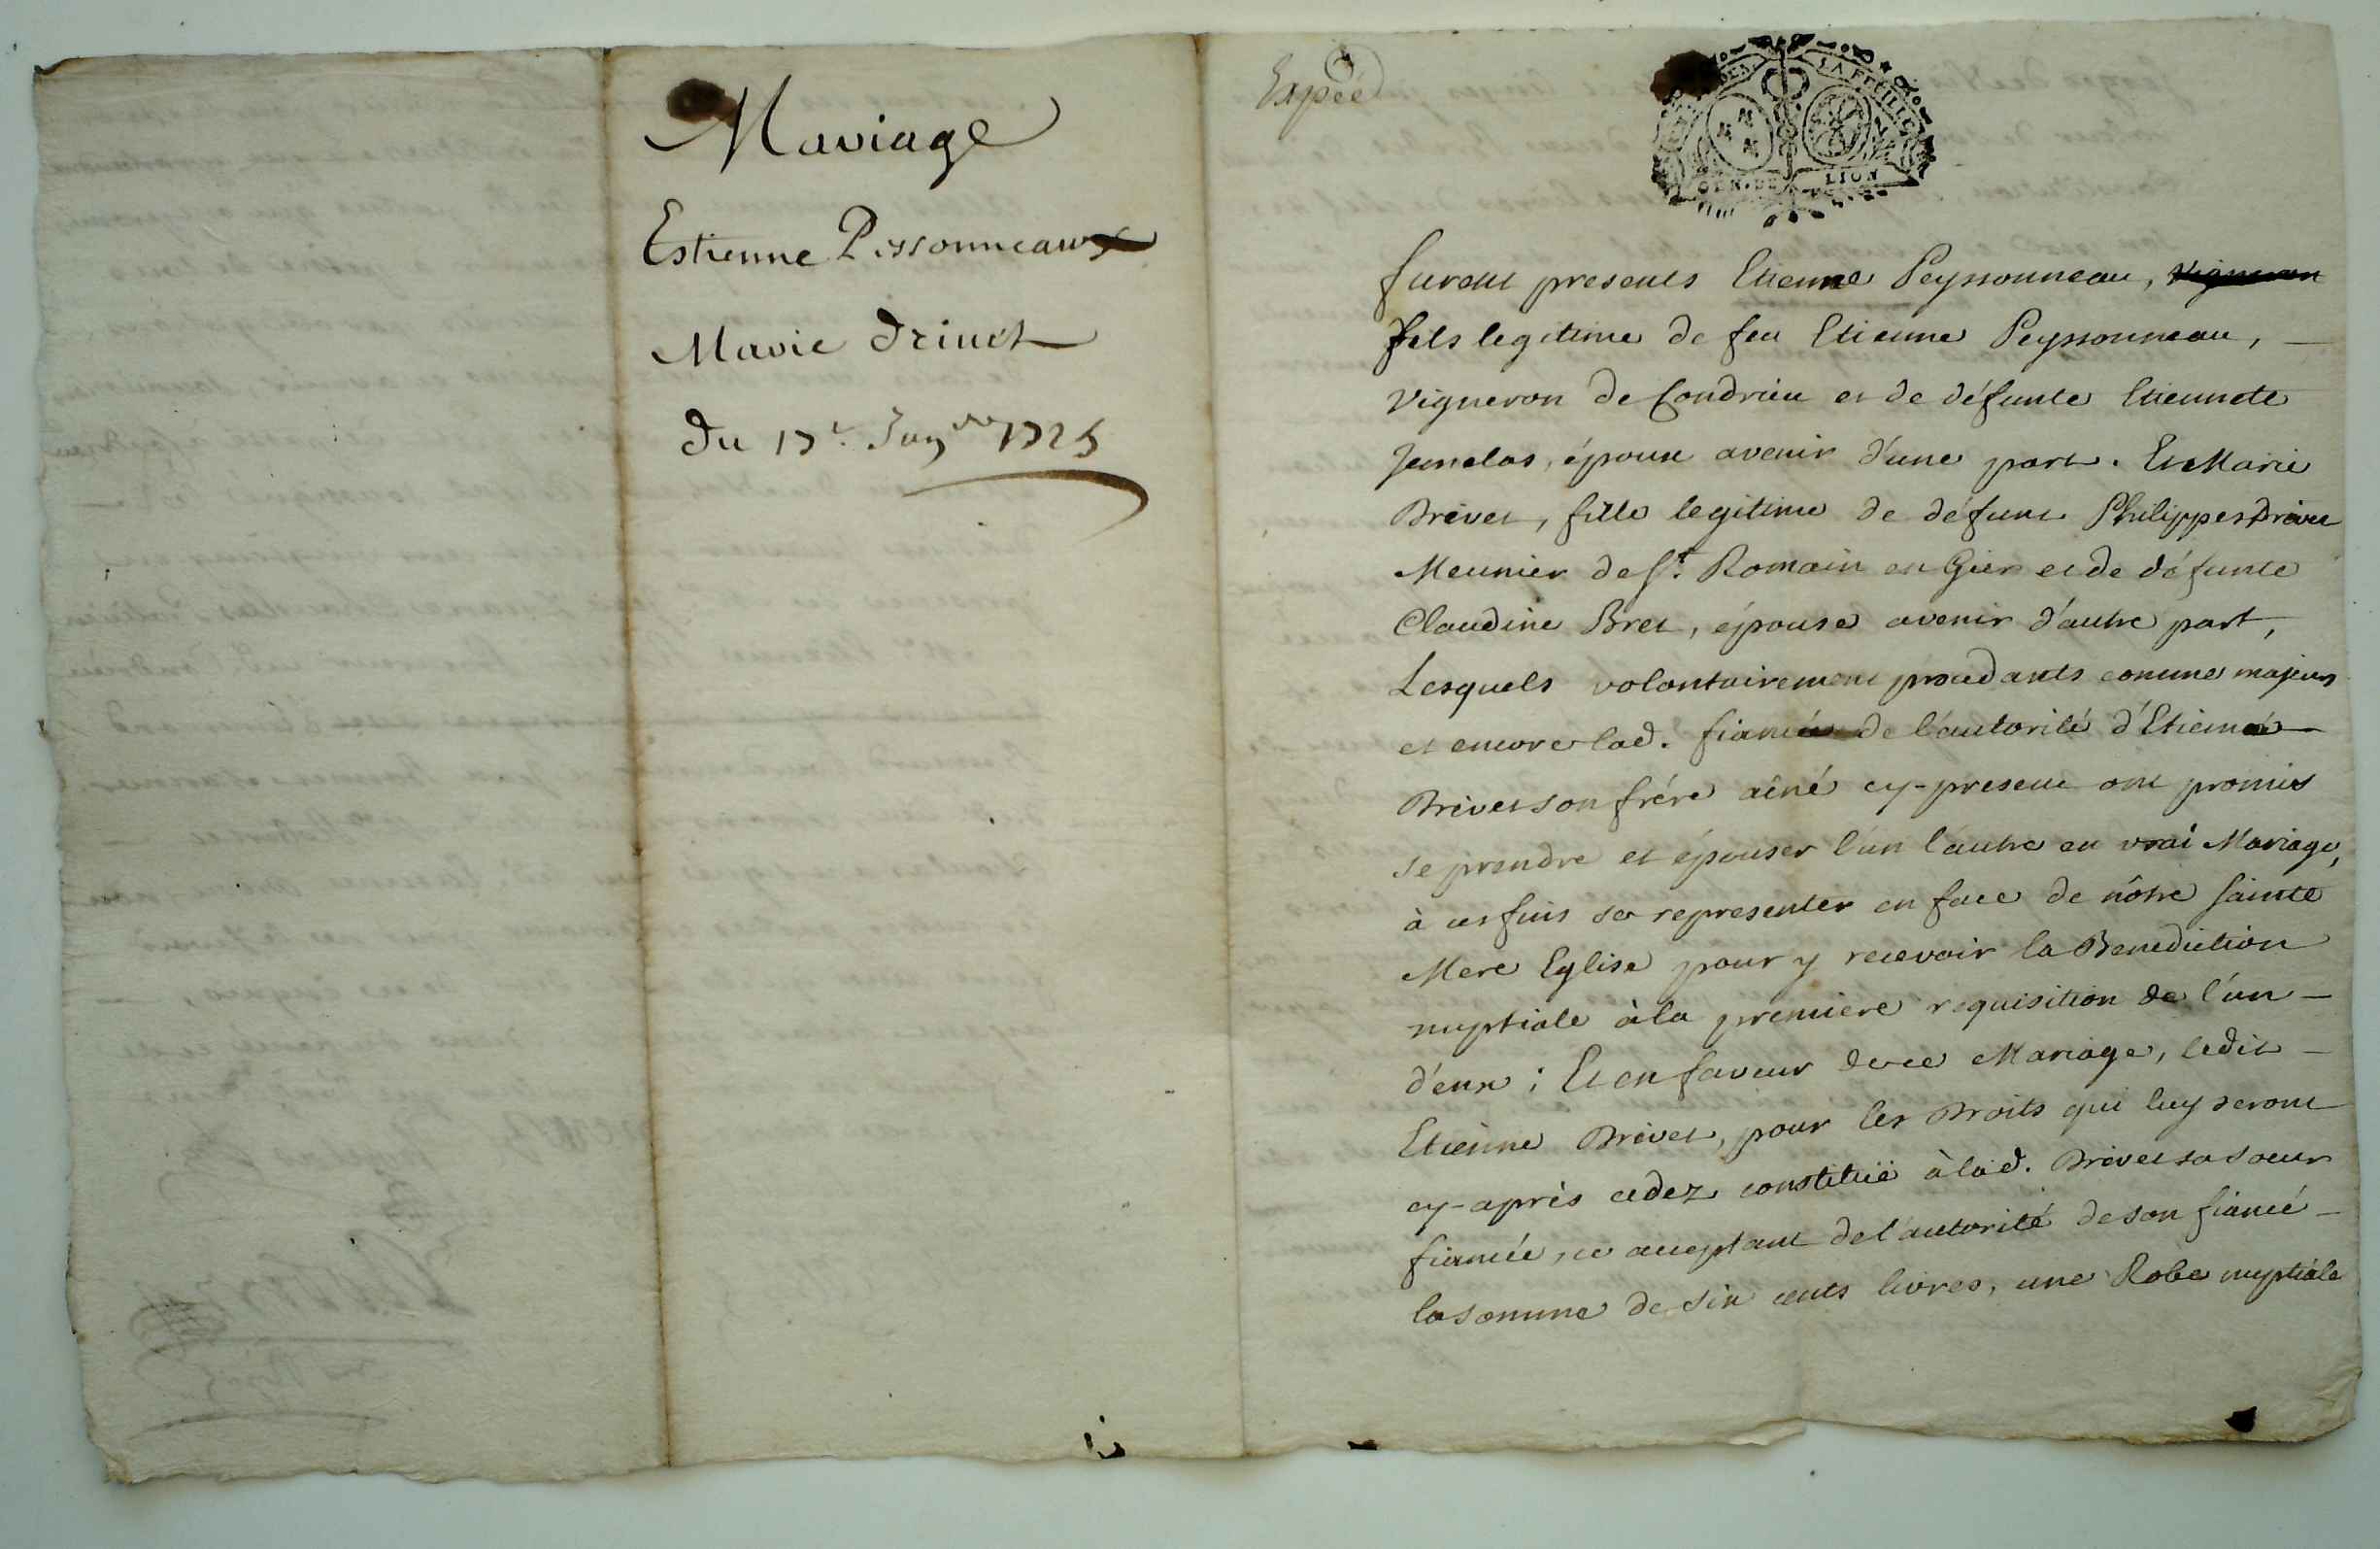 Mariage
Estienne Pissonneaux
Marie Drivet
du 17e. Janver 1725
Expéé
LA FEUILLE
GEN. DE LION
furent presents Etienne Peyssonneau, vigneron
fils legitime de feu Etienne Peyssonneau,
vigneron de Condrieu et de défunte Etiennete
Jamelas, époux avenir d'une part. Et Marie
Drivet, fille legitime de défunt Philippes Drivet
Meunier de St. Romain en Gier et de défunte
Claudine Bret, épouse avenir d'autre part,
Lesquels volontairement procedants comme majeurs
et encore lad. fiancée de l'autorité d'Etienne
Drivet son frére aîné cy-present ont promis
se prendre et épouser l'un l'autre en vrai Mariage,
à ces fins se representer en face de nôtre sainte
Mere Eglise pour y recevoir la Benediction
nuptiale à la premiere requisition de l'un
d'eux ; Et en faveur de ce Mariage, ledit
Etienne Drivet, pour les Droits qui luy seront
cy-après cedez constituë à lad. Drivet sa soeur
fiancée, ce acceptant de l'autorité de son fiancé
la somme de six cents livres, une Robe nuptiale